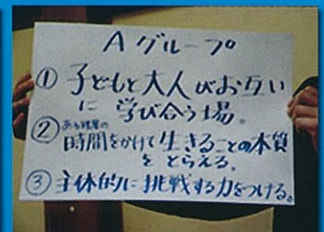 Aグループ
① 子どもと大人がお互い
に 学び合う場。
② ある程度の
時間をかけて生きることの本質
をとらえる。
③ 主体的に挑戦する力をつける。